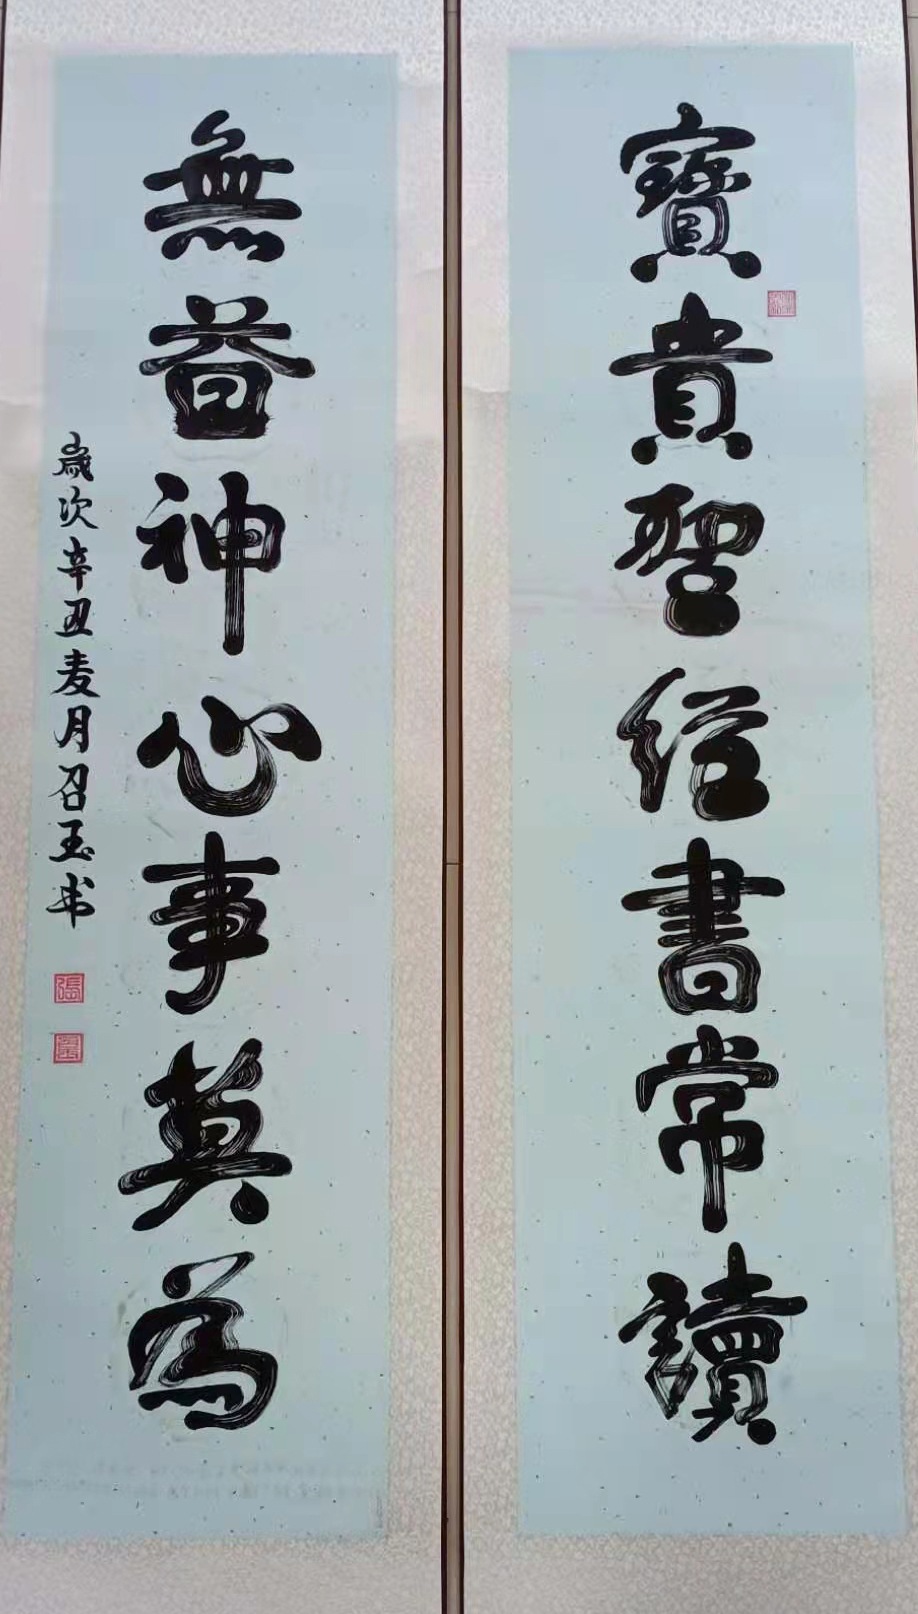 寶貴聖經書常讀
無益神心事莫為
歲次辛丑麦月召玉书
張